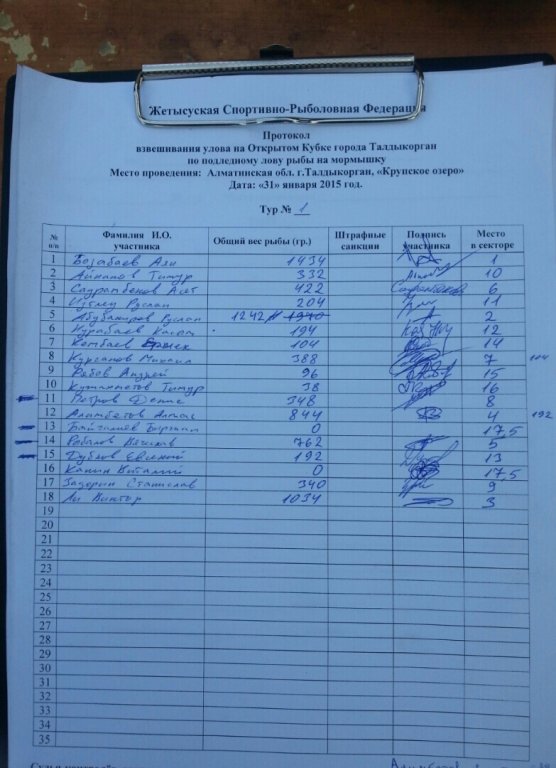 Жетысуская Спортивно-Рыболовная Федерация
Протокол
взвешивания улова на Открытом Кубке города Талдыкорган
по подледному лову рыбы на мормышку
Место проведения: Алматинская обл. г.Талдыкорган, «Крупское озеро»
Дата: «31» января 2015 год.
Тур № 1
№ п/п Фамилия И.О. участника Общий вес рыбы (гр.) Штрафные санкции Подпись участника Место в секторе
1 Бозабаев Ази 1434 1
2 Айнанов Тимур 332 10
3 Садрамбенов Асет 422 6
4 Руслан 204 11
5 Абубакиров Руслан 1242 1940 2
6 Курабаев 194 12
7 Камбаев 104 14
8 Курганов Михаил 388 7 104
9 Рябов Андрей 96 15
10 Тимур 38 16
11 Петров Денис 348 8
12 Алимбетов Алмас 844 4 192
13 0 17,5
14 762 5
15 Дубков Евгений 192 13
16 Канин Виталий 0 17,5
17 Задорин Станислав 340 9
18 Ли Виктор 1034 3
19
20
21
22
23
24
25
26
27
28
29
30
31
32
33
34
35